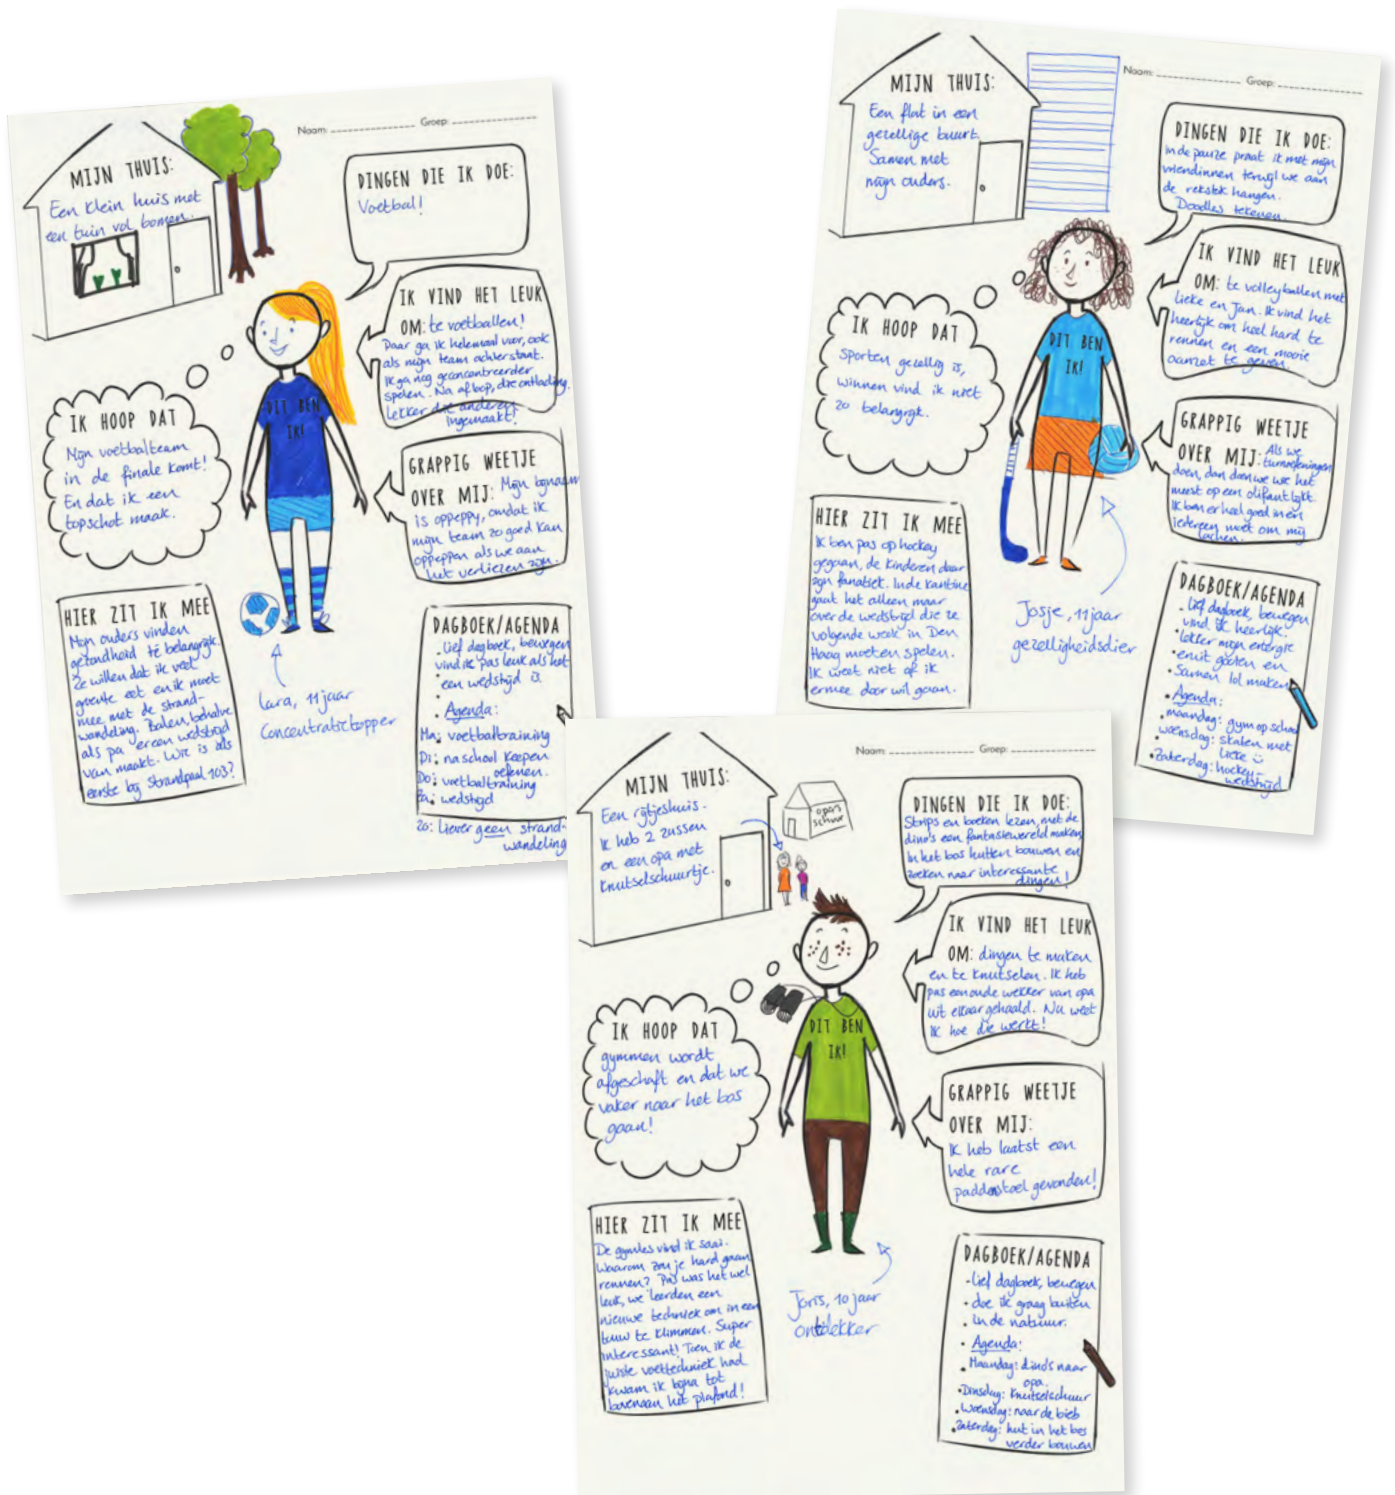 Naam: Groep:
MIJN THUIS:
Een klein huis met
een tuin vol bomen.
DINGEN DIE IK DOE:
Voetbal!
IK VIND HET LEUK
OM: te voetballen!
Daar ga ik helemaal voor, ook
als mijn team achter staat.
Ik ga nog geconcentreerder
spelen. Na afloop, die ontlading.
Lekker die anderen
ingemaakt!
IK HOOP DAT
Mijn voetbalteam
in de finale komt!
En dat ik een
topschot maak.
DIT BEN
IK!
GRAPPIG WEETJE
OVER MIJ: Mijn bijnaam
is oppeppy, omdat ik
mijn team zo goed kan
oppeppen als we aan
het verliezen zijn.
HIER ZIT IK MEE
Mijn ouders vinden
gezondheid té belangrijk.
Ze willen dat ik veel
groente eet en ik moet
mee met de strand-
wandeling. Balen, behalve
als pa er een wedstrijd
van maakt. Wie is als
eerste bij strandpaal 103?
Lara, 11 jaar
Concentratietopper
DAGBOEK/AGENDA
Lief dagboek, bewegen
vind ik pas leuk als het
een wedstrijd is
Agenda:
Ma: voetbaltraining
Di: na school keepen
oefenen.
Do: voetbaltraining
Za: wedstrijd
Zo: Liever geen strand-
wandeling
Naam: Groep:
MIJN THUIS:
Een flat in een
gezellige buurt.
Samen met
mijn ouders.
DINGEN DIE IK DOE:
In de pauze praat ik met mijn
vriendinnen terwijl we aan
de rekstok hangen.
Doodles tekenen.
IK VIND HET LEUK
OM: te volleyballen met
Lieke en Jan. Ik vind het
heerlijk om heel hard te
rennen en een mooie
aanzet te geven.
IK HOOP DAT
Sporten gezellig is,
winnen vind ik niet
zo belangrijk.
DIT BEN
IK!
GRAPPIG WEETJE
OVER MIJ: Als we
turnoefeningen
doen, dan doen we wie het
meest op een olifant lijkt.
Ik ben er heel goed in en
iedereen moet om mij
lachen.
HIER ZIT IK MEE
Ik ben pas op hockey
gegaan, de kinderen daar
zijn fanatiek. In de kantine
gaat het alleen maar
over de wedstrijd die ze
volgende week in Den
Haag moeten spelen.
Ik weet niet of ik
ermee door wil gaan.
Josje, 11 jaar
gezelligheidsdier
DAGBOEK/AGENDA
Lief dagboek, bewegen
vind ik heerlijk.
lekker mijn energie
eruit gooien en
Samen lol maken
Agenda:
maandag: gym op school
woensdag: skaten met
Lieke
Zaterdag: hockey-
wedstrijd
Naam: Groep:
MIJN THUIS:
Een rijtjeshuis.
Ik heb 2 zussen
en een opa met
knutselschuurtje.
opa's
schuur
DINGEN DIE IK DOE:
Strips en boeken lezen, met de
dino's een fantasiewereld maken,
In het bos hutten bouwen en
zoeken naar interessante
dingen!
IK VIND HET LEUK
OM: dingen te maken
en te knutselen. Ik heb
pas een oude wekker van opa
uit elkaar gehaald. Nu weet
ik hoe die werkt!
IK HOOP DAT
gymmen wordt
afgeschaft en dat we
vaker naar het bos
gaan!
DIT BEN
IK!
GRAPPIG WEETJE
OVER MIJ:
Ik heb laatst een
hele rare
paddenstoel gevonden!
HIER ZIT IK MEE
De gymles vind ik saai.
Waarom zou je hard gaan
rennen? Pas was het wel
leuk, we leerden een
nieuwe techniek om in een
touw te klimmen. Super
interessant! Toen ik de
juiste voettechniek had
kwam ik bijna tot
bovenaan het plafond!
Joris, 10 jaar
ontdekker
DAGBOEK/AGENDA
Lief dagboek, bewegen
doe ik graag buiten
in de natuur.
Agenda:
Maandag: dino's naar
opa.
Dinsdag: knutselschuur
Woensdag: naar de bieb
Zaterdag: hut in het bos
verder bouwen